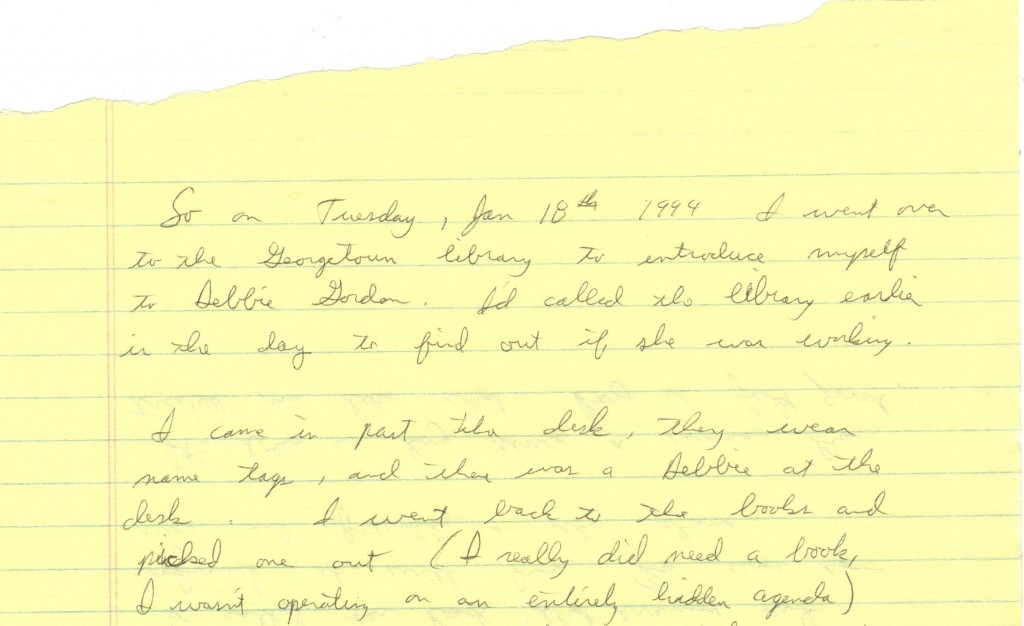 So on Tuesday, Jan 18th 1994 I went over
to the Georgetown library to introduce myself
to Debbie Gordon. I'd called the library earlier
in the day to find out if she was working.
I came in past the desk, they wear
name tags, and there was a Debbie at the
desk. I went back to the books and
picked one out (I really did need a book,
I wasn't operating on an entirely hidden agenda)